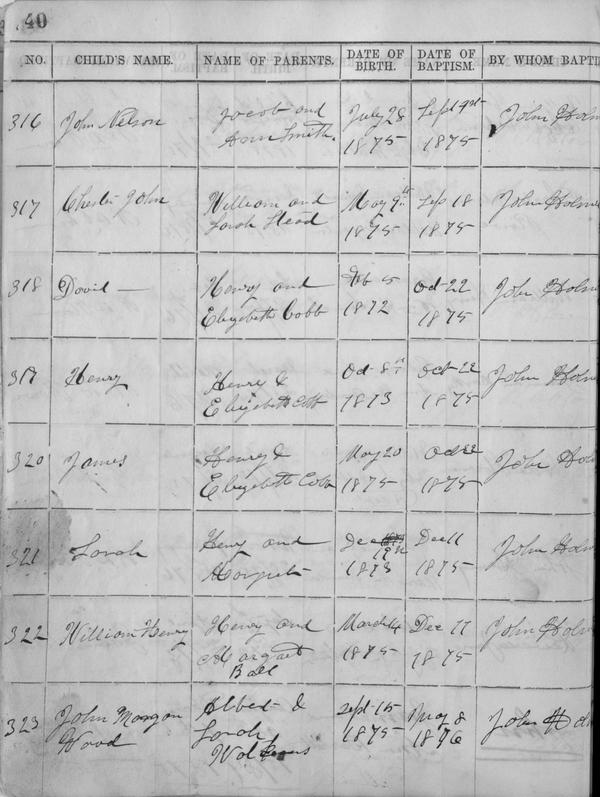 40
NO. CHILD'S NAME. NAME OF PARENTS. DATE OF BIRTH. DATE OF BAPTISM. BY WHOM BAPTI
316 John Nelson Jacob and July 28 Sept
Ann Smith. 1875 1875 John Holm
317 Chester John William and May 9th Sep 18 John Holme
Sarah Head 1875 1875
318 David — Henry and Feb 5 Oct 22 John Holm
Elizabeth Cobb 1872 1875
319 Henry Henry & Oct 8th Oct 22 John Holm
Elizabeth Cobb 1873 1875
320 James Henry & May 20 Oct 22 John Hol
Elizabeth Cobb 1875 1875
321 Sarah Henry and Dec Dec 11 John Holm
Margret 1873 1875
322 William Henry Henry and March 14 Dec 11 John Holm
Margaet 1875 1875
Ball
323 John Morgan Albert & Sept 15 May 8 John Hol
Wood Sarah 1875 1876